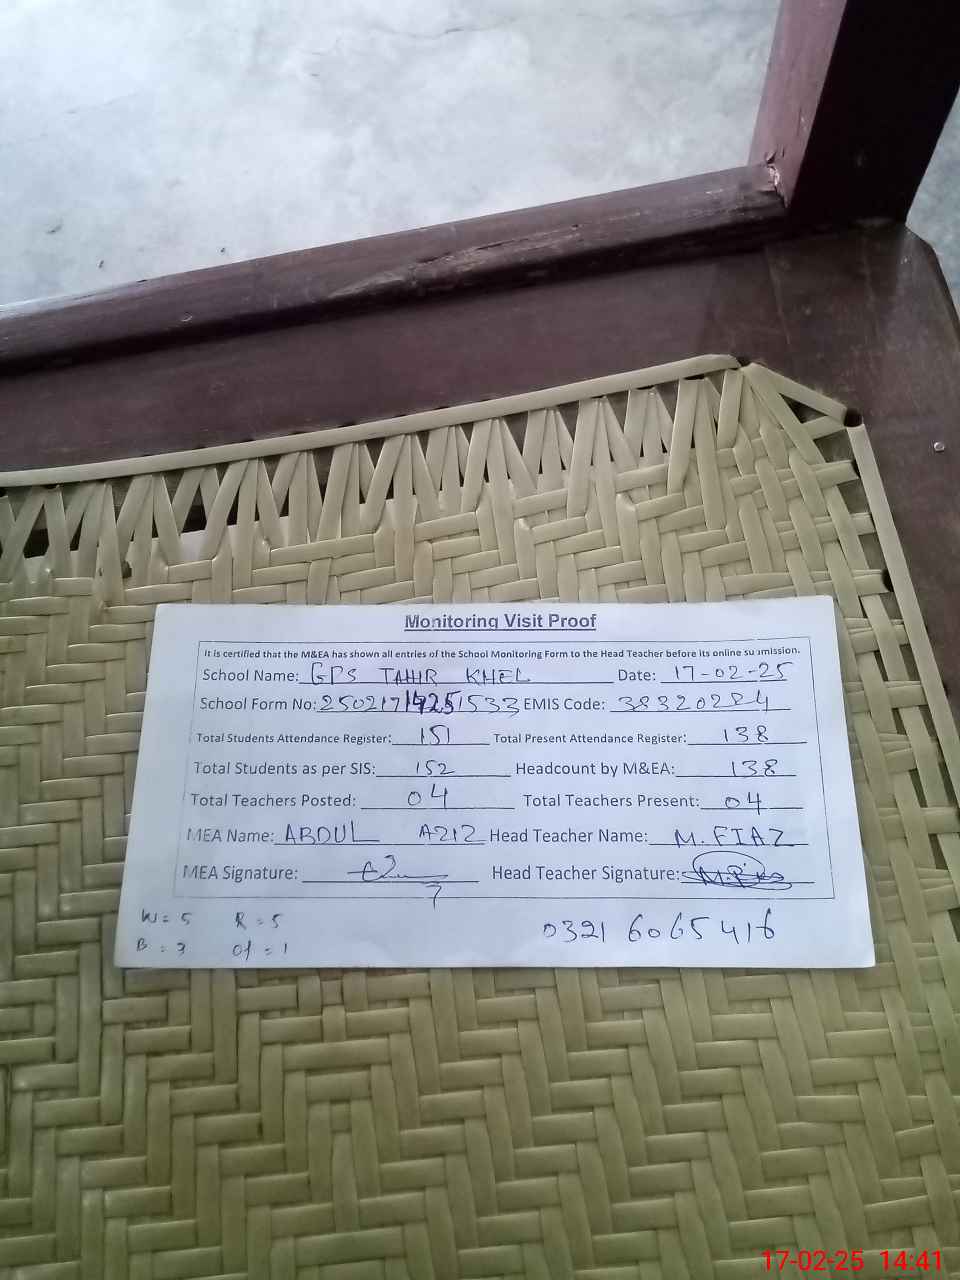 Monitoring Visit Proof
It is certified that the M&EA has shown all entries of the School Monitoring Form to the Head Teacher before its online submission.
School Name: GPS TAHIR KHEL Date: 17-02-25
School Form No: 25021714251533 EMIS Code: 38320284
Total Students Attendance Register: 151 Total Present Attendance Register: 138
Total Students as per SIS: 152 Headcount by M&EA: 138
Total Teachers Posted: 04 Total Teachers Present: 04
MEA Name: ABDUL AZIZ Head Teacher Name: M. FIAZ
MEA Signature: Head Teacher Signature:
W = 5 R = 5 0321 6065416
B = 3 Of = 1
17-02-25 14:41